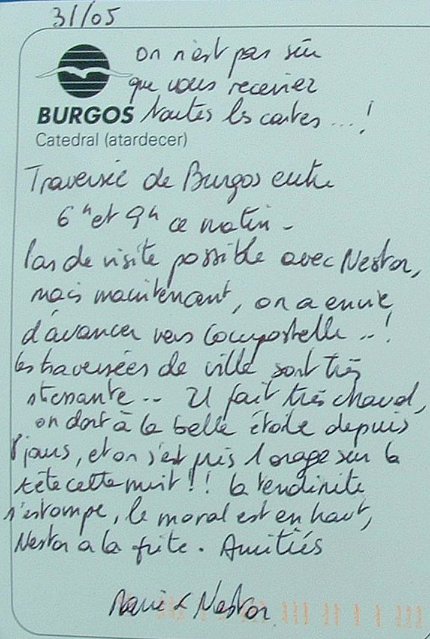 31/05
on n'est pas sûr
que vous receviez
BURGOS toutes les cartes...!
Catedral (atardecer)
Traversée de Burgos entre
6h et 9h ce matin -
Pas de visite possible avec Nestor,
mais maintenant, on a envie
d'avancer vers Compostelle..!
les traversées de ville sont très
stressante.. Il fait très chaud,
on dort à la belle étoile depuis
8 jours, et on s'est pris 1 orage sur la
tête cette nuit!! la tendinite
s'estompe, le moral est en haut,
Nestor a la frite. Amitiés
Marie & Nestor